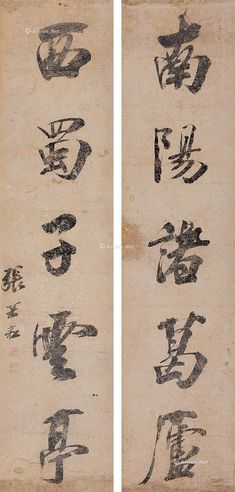 南陽諸葛廬
西蜀子雲亭
張若靄